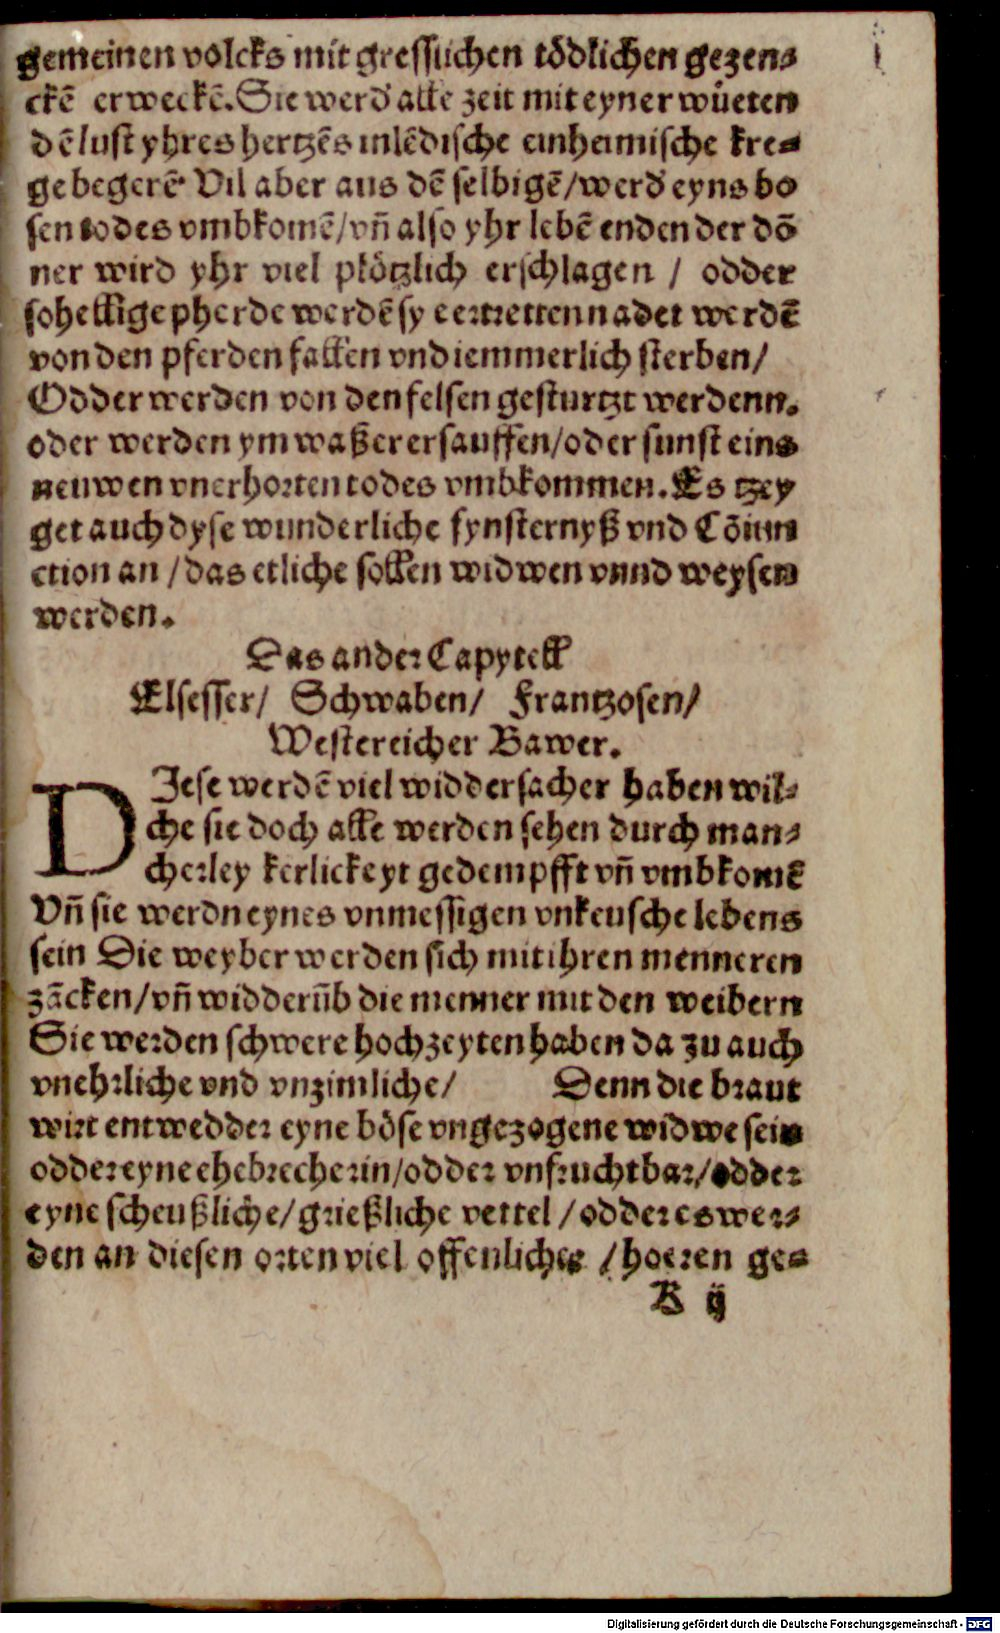 gemeinen volcks mit gresslichen tödlichen gezen⸗
ckē erweckē. Sie werd alle zeit mit eyner wüeten
dē lust yhres hertzēs inlēdische einheimische kre⸗
ge begerē Vil aber aus dē selbigē/werd eyns bo
sen todes vmbkomē/vn̄ also yhr lebē enden der dō
ner wird yhr viel plötzlich erschlagen / odder
sohellige pherde werdē sy eertrettenn adet werdē
von den pferden fallen vnd iemmerlich sterben/
Odder werden von den felsen gesturtzt werdenn.
oder werden ym waßer ersauffen/oder sunst eins
neuwen vnerhorten todes vmbkommen. Es tzey
get auch dyse wunderliche fynsternyß vnd Cōiun
ction an /das etliche sollen widwen vnnd weysen
werden.
Das ander Capytell
Elsesser/ Schwaben/ Frantzosen/
Westereicher Bawer.
DIese werdē viel widdersacher haben wil⸗
che sie doch alle werden sehen durch man⸗
cherley kerlickeyt gedempfft vn̄ vmbkomē
Vn̄ sie werdn eynes vnmessigen vnkeusche lebens
sein Die weyber werden sich mit ihren menneren
zācken/vn̄ widderūb die menner mit den weibern
Sie werden schwere hochzeyten haben da zu auch
vnehrliche vnd vnzimliche/ Denn die braut
wirt entwedder eyne böse vngezogene widwe sein
odder eyne ehebrecherin/odder vnfruchtbar/odder
eyne scheußliche/grießliche vettel /odder es wer⸗
den an diesen orten viel offenlicher /hoeren ge⸗
B ij
Digitalisierung gefördert durch die Deutsche Forschungsgemeinschaft - DFG